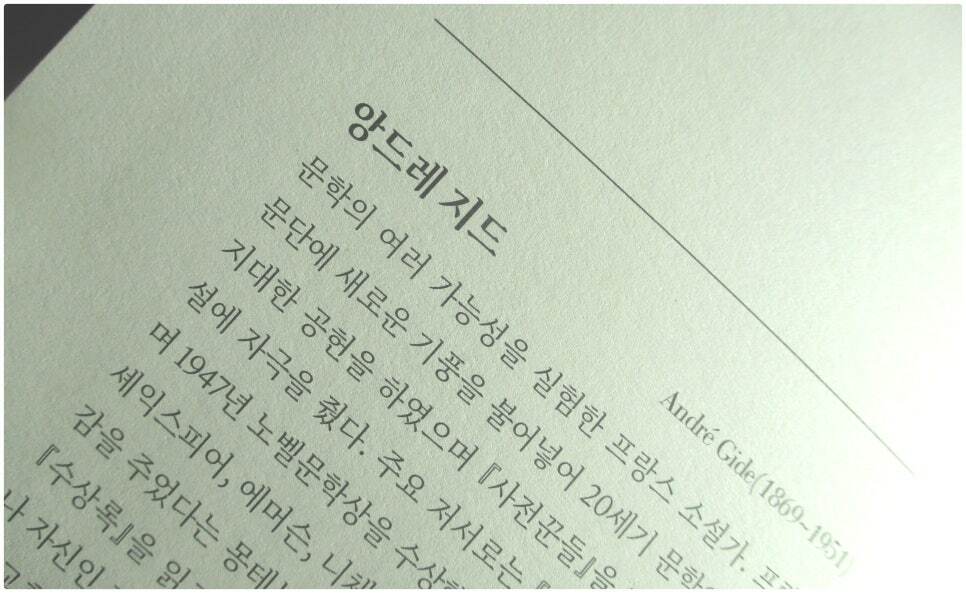 앙드레 지드
André Gide(1869~1951)
문학의 여러 가능성을 실험한 프랑스 소설가.
문단에 새로운 기풍을 불어넣어 20세기
지대한 공헌을 하였으며 『사전꾼들』을
설에 자극을 줬다. 주요 저서로는
며 1947년 노벨문학상을
셰익스피어, 에머슨,
감을 주었다는
『수상록』을
나 자신인